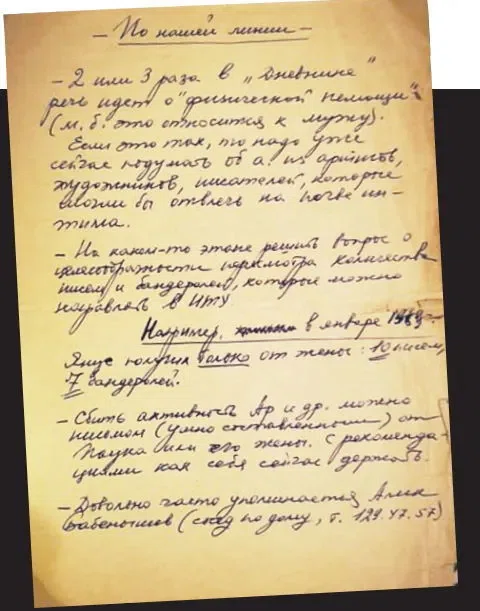 — По нашей линии —
— 2 или 3 раза в „Дневнике"
речь идет о „физической немощи"
(м. б. это относится к мужу).
Если это так, то надо уже
сейчас подумать об а. из артистов,
художников, писателей, которые
могли бы отвлечь на почве ин-
тима.
— На каком-то этапе решить вопрос о
целесообразности пересмотра количества
писем и бандеролей, которые можно
направлять в ИТУ
Например, в январе 198 г.
получил только от жены: 10 писем,
7 бандеролей.
— Сбить активность Ар и др. можно
письмом (умно составленным) от
Паука или его жены. с рекоменда-
циями как себя сейчас держать.
— Довольно часто упоминается Алик
Бабенышев (сосед по дому, т. 129.47.57)